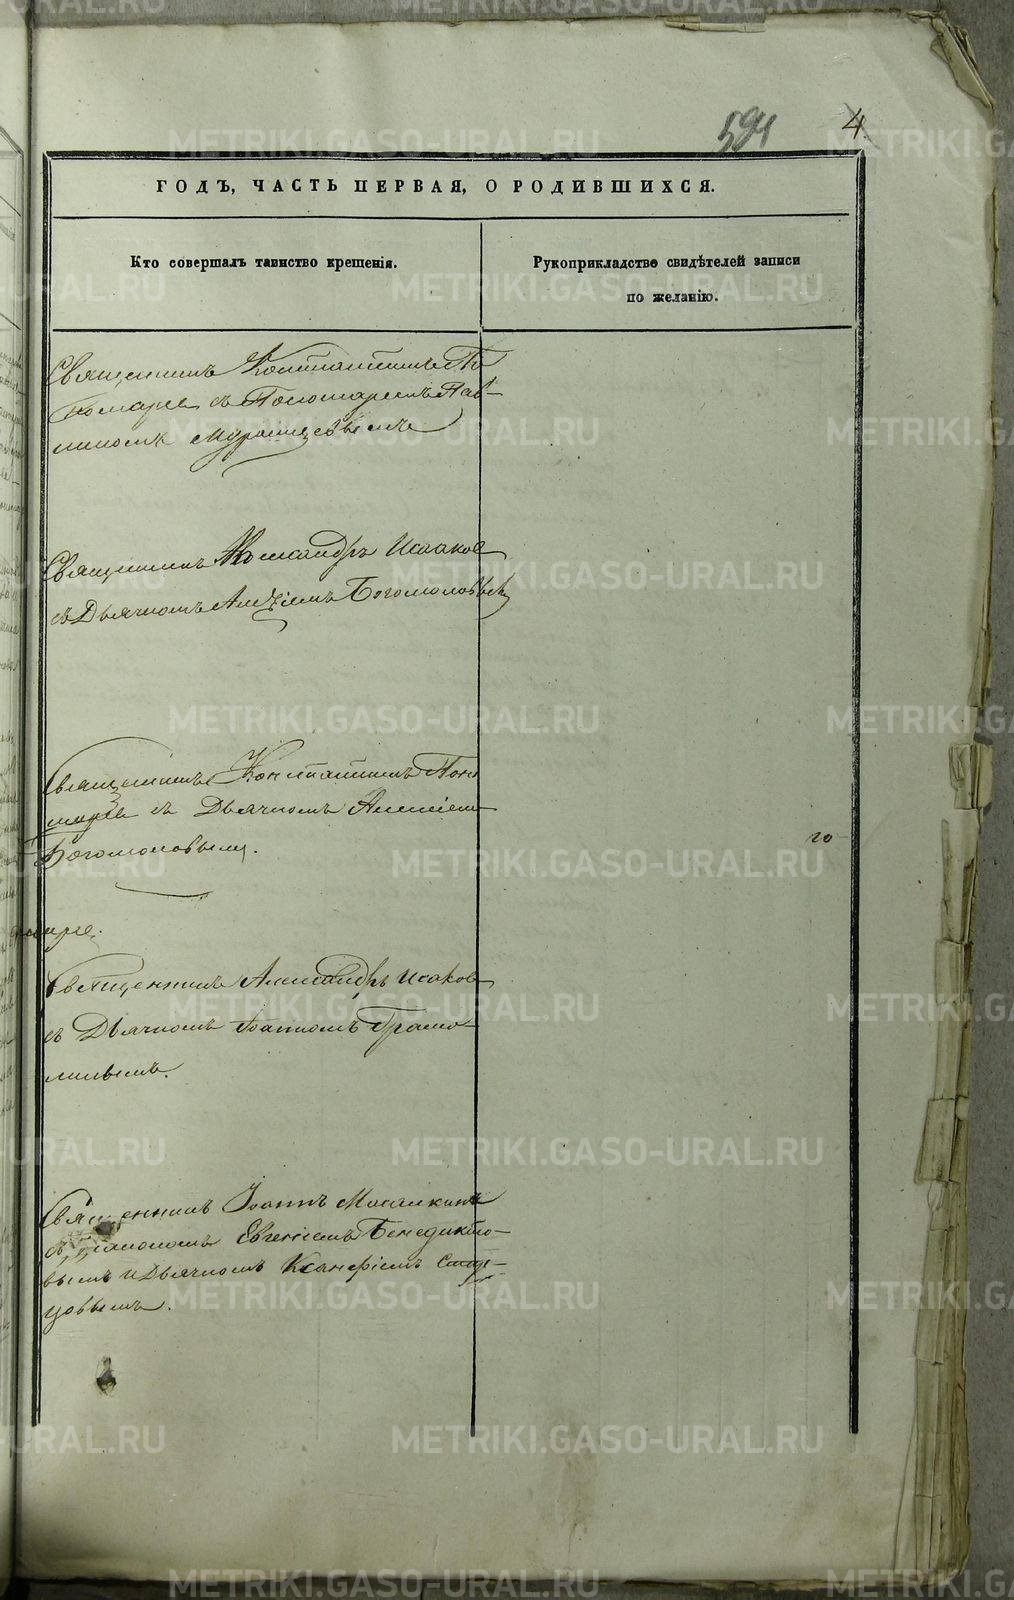 594 4
ГОДЪ, ЧАСТЬ ПЕРВАЯ, О РОДИВШИХСЯ.
Кто совершалъ таинство крещенія.
Рукоприкладство свидѣтелей записи
по желанію.
Священникъ Константинъ По
номарев съ Пономаремъ Пав
линомъ
Священникъ Александръ Исааков
съ Дьячкомъ Алексіемъ Богомоловым
Священникъ Константинъ Поно
марев съ Дьячкомъ Алексіем
Богомоловымъ.
го
Священникъ Александръ Исаков
съ Дьячкомъ Іоанномъ Грамо
линымъ.
Священникъ Іоаннъ Масалкинъ
съ Діакономъ Евгеніемъ Бенедикто-
вымъ и Дьячкомъ Ксанфіемъ
цовымъ.
METRIKI.GASO-URAL.RU